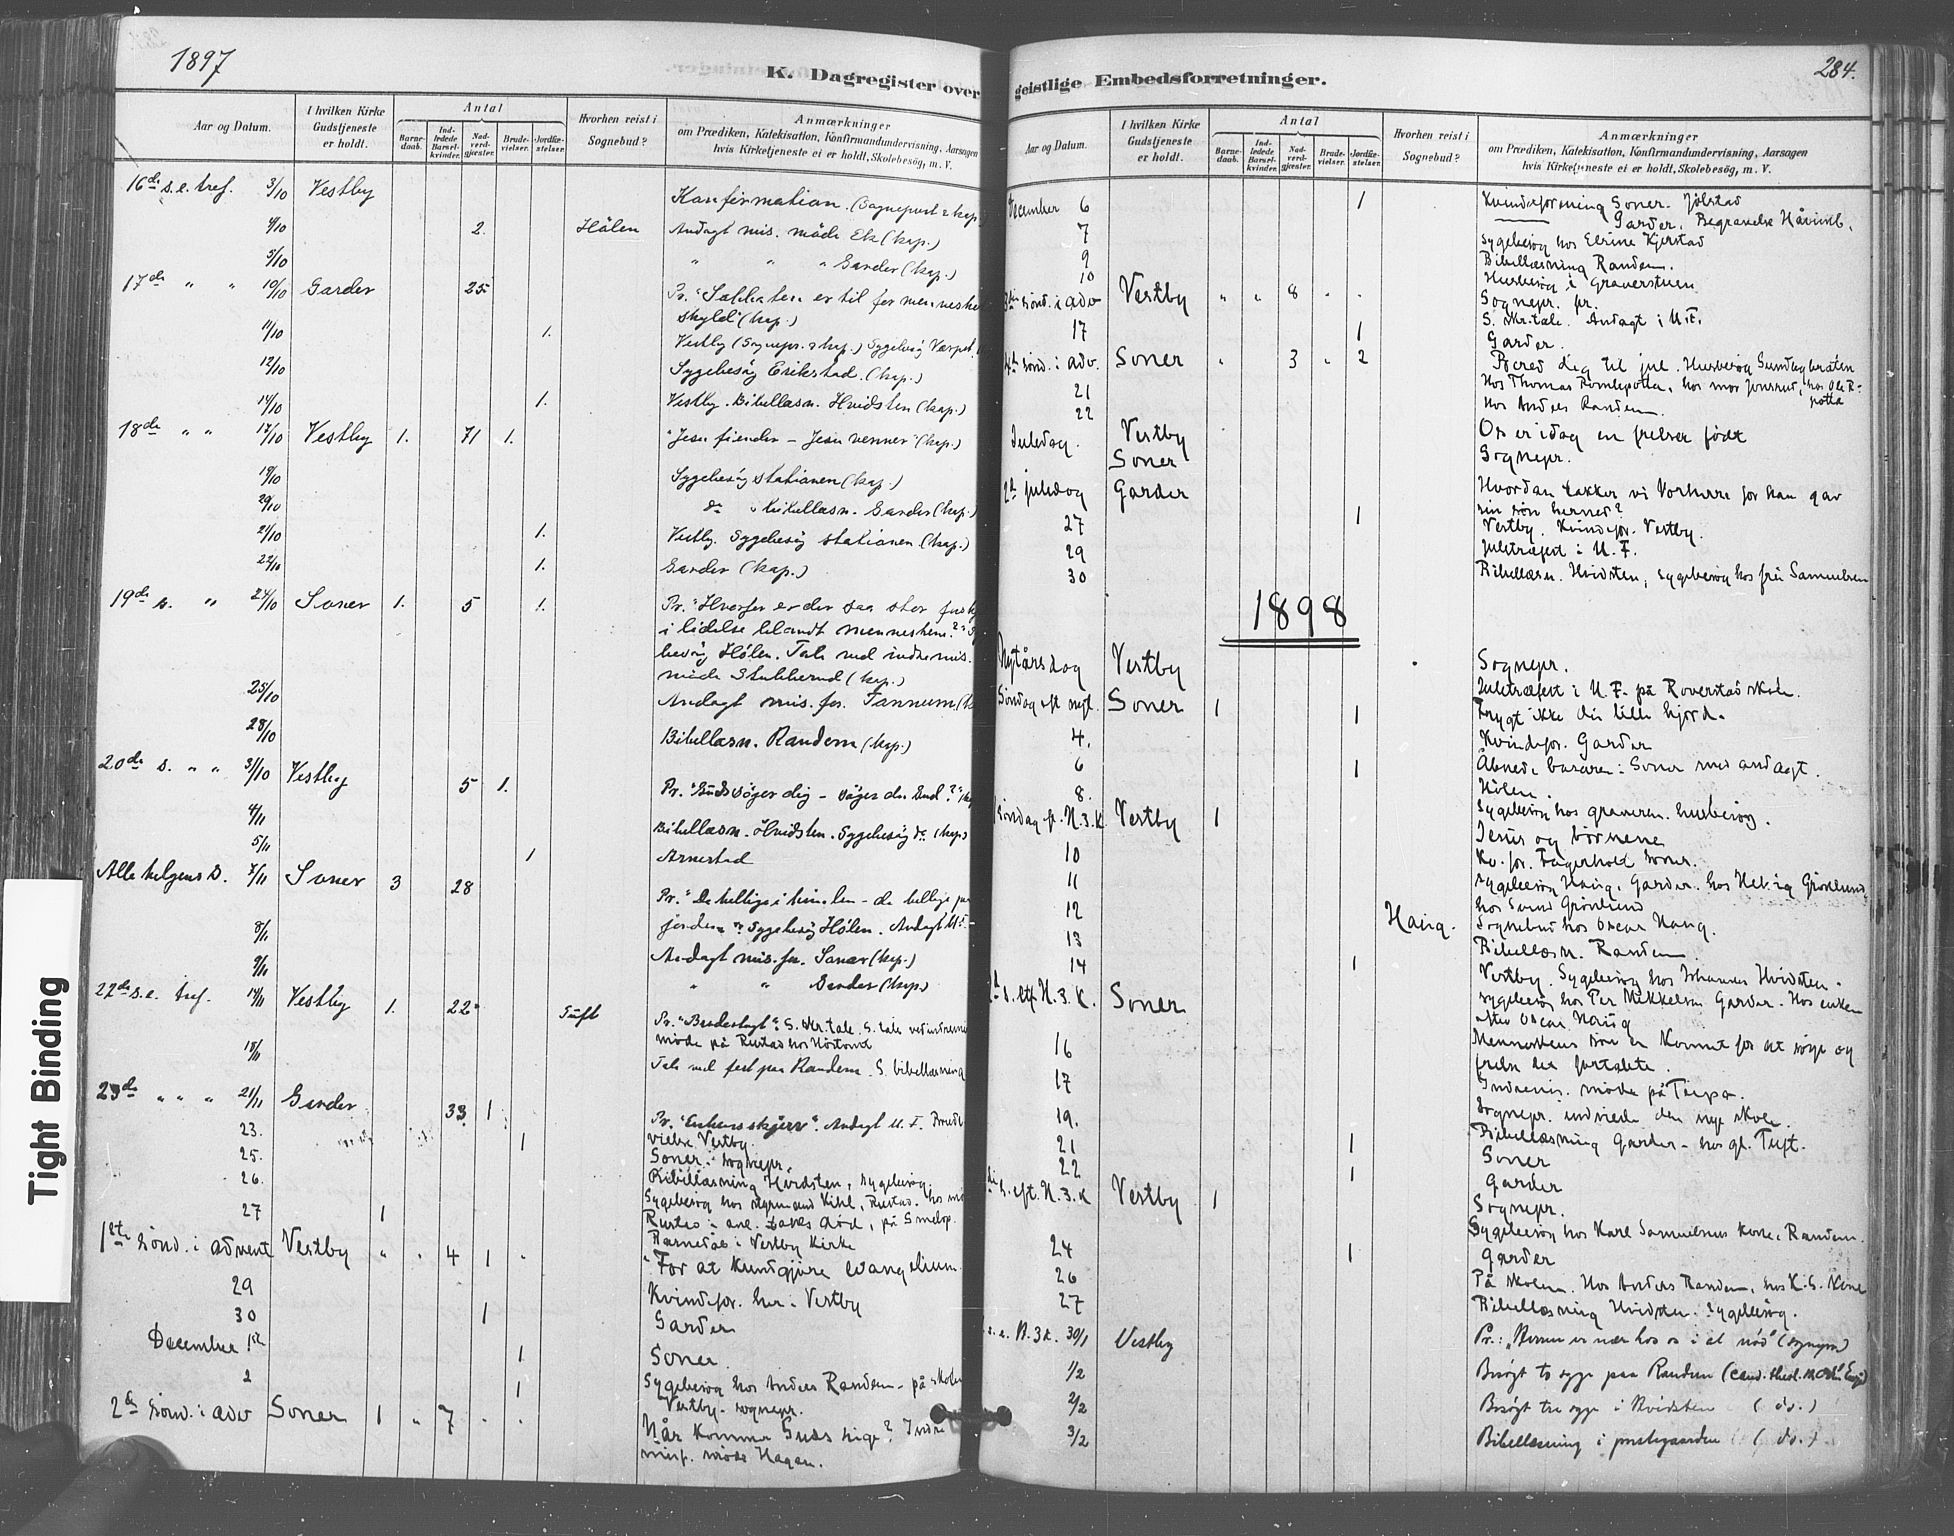 1897
K. Dagregister over
Aar og Datum.
I hvilken Kirke Gudstjeneste er holdt.
Antal
Barnedaab.
Indledede Barselkvinder.
Nadverdgjæster.
Brudevielser.
Jordfæstelser.
Hvorhen reist i Sognebud?
Anmærkninger
om Prædiken, Katekisation, Konfirmandundervisning, Aarsagen
hvis Kirketjeneste ei er holdt, Skolebesøg, m. V.
16de s.e. tref. 3/10 Vestby Konfirmation. (Sognepræst & kap.)
4/10 2 Hølen Andagt mis. møde Ek (kap.)
5/10 " " " Garder (kap.)
17de " " 10/10 Garder 25 Pr. "Sabbaten er til for menneskets
skyld" (kap.)
11/10 1. Vestby (Sognepr. & kap.) Sygebesøg
12/10 Sygebesøg Erikstad. (kap.)
14/10 1. Vestby. Bibellæsn. Hvidsten (kap.)
18de " " 17/10 Vestby 1. 71 1. "Jesu fiender – Jesu venner" (kap.)
19/10 Sygebesøg stationen (kap.)
20/10 do Bibellæsn. Garder (kap.)
21/10 1. Vestby. Sygebesøg stationen (kap.)
22/10 1. Garder (kap.)
19de s. " 24/10 Soner 1. 5 1. Pr. "Hvorfor er der saa stor forskj
i lidelse blandt menneskene?"
besøg Hølen. Tale ved indremis.
møde Stubberud (kap.)
25/10 Andagt mis. for. Tannum
28/10 Bibellæsn. Randem (kap.)
20de s. " " 31/10 Vestby 5 1. Pr. "Gud søger dig – søger du Gud?"
4/11 Bibellæsn. Hvidsten. Sygebesøg do (kap.)
5/11 1 Arnestad
Alle helgens D. 7/11 Soner 3 28 Pr. "De hellige i himlen – de hellige paa
jorden" Sygebesøg Hølen. Andagt
8/11 Andagt mis. for. Soner (kap.)
9/11 " " Garder (kap.)
22de s.e. tref. 14/11 Vestby 1. 22 Tuft Pr. "Bededagt". S. skr. tale. S. tale ved indremis
møde på Rustad hos
18/11 Tale ved fest paa Randem. S. bibellæsning
23de " " " 21/11 Garder 33 1 Pr. "Enkens skjærv". Andagt U.F. Brude
vielse Vestby.
23. 1 Soner: sognepr.
25. Bibellæsning Hvidsten, sygebesøg.
26. Sygebesøg hos
27 1
Barnedåb i Vestby Kirke
1ste sönd. i advent Vestby " " 4 1 " "For at kundgjøre evangelium
29 Kvindefor. her i Vestby
30 1 Garder
December 1st 1 Soner.
2 1 Sygebesøg hos Anders Randem – på skolen
Vestby – sognepr.
2de sönd. i adv Soner 1 " 7 . . Når kommer Guds rige? Indre
miss. møde Hagen.
geistlige Embedsforretninger.
284.
Aar og Datum.
I hvilken Kirke Gudstjeneste er holdt.
Antal
Barnedaab.
Indledede Barselkvinder.
Nadverdgjæster.
Brudevielser.
Jordfæstelser.
Hvorhen reist i Sognebud?
Anmærkninger
om Prædiken, Katekisation, Konfirmandundervisning, Aarsagen
hvis Kirketjeneste ei er holdt, Skolebesøg, m. V.
December 6 1 Kvindeforening Soner. Jölstad
7 Garder. Begravelse
9 Sygebesög hos Elrine Kjerstad
10 Bibellæsning Randem.
Husbesög i Graverstuen
3die sönd. i adv Vestby " " 8 . . Sognepr. pr.
S. skr.tale. Andagt i U.F.
17 1 Garder.
4de sönd. i adv. Soner " 3 " 2 Bered dig til jul. Husbesög
21 Hos Thomas
22 Hos Anders Randem.
Juledag. Vestby Os er idag en frelser födt
Soner Sognepr.
2den juledag Garder Hvordan takker vi Vorherre for han gav
sin sön herned?
27 1 Vestby. Kvindefor. Vestby.
29 Juletræfest i U.F.
30 Bibellæsn. Hvidsten, sygebesög hos frk Samuelsen
1898
Nytårsdag Vestby Sognepr.
Juletræfest i U.F. på Roverstad skole.
Söndag eft nytt. Soner 1 1 Frygt ikke du lille hjord.
4. Kvindefor. Garder
6 1 Åbnede basaren i Soner med andagt.
8. Hölen.
Sygebesög hos graveren. Husbesög.
Söndag ef. H.3.K Vestby 1 Jesus og börnene
10 Kv. for. Fagerhold Soner.
11 Sygebesög Haug, Garder. hos Hedvig Grönlund
12 Haug. hos Svend Grönlund
Sognebud hos Oscar Haug.
13 Bibellæsn. Randem.
14 1 Vestby. Sygebesög hos Johannes Hvidsten.
Sygebesög hos Per Mikkelsen Garder. Hos enken
efter Oscar Haug
S. eft H.3.K. Soner Menneskens sön er kommet for at söge og
frelse det fortabte.
16
17 Indremis. møde på
19. Sognepr. indviede den nye skole.
21 1 Bibellæsning Garder – hos gl. Tuft.
22 1 Soner
Garder
S. eft. H.3.K Vestby 1 Sognepr.
Sygebesög hos Karl Samuelsens kone i Randem.
24 1 Garder
26 På skolen. Hos Anders Randem, hos
27 Bibellæsning Hvidsten. Sygebesög.
s.e. H.3K. 30/1 Vestby Pr.: "Herren er nær hos os i al nød" (sognepr)
1/2 Besøgt to syge paa Randem (cand. theol.
2/2 Besøgt tre syge i Hvidsten (do.)
3/2 Bibellæsning i prestegaarden (do.)
Tight Binding